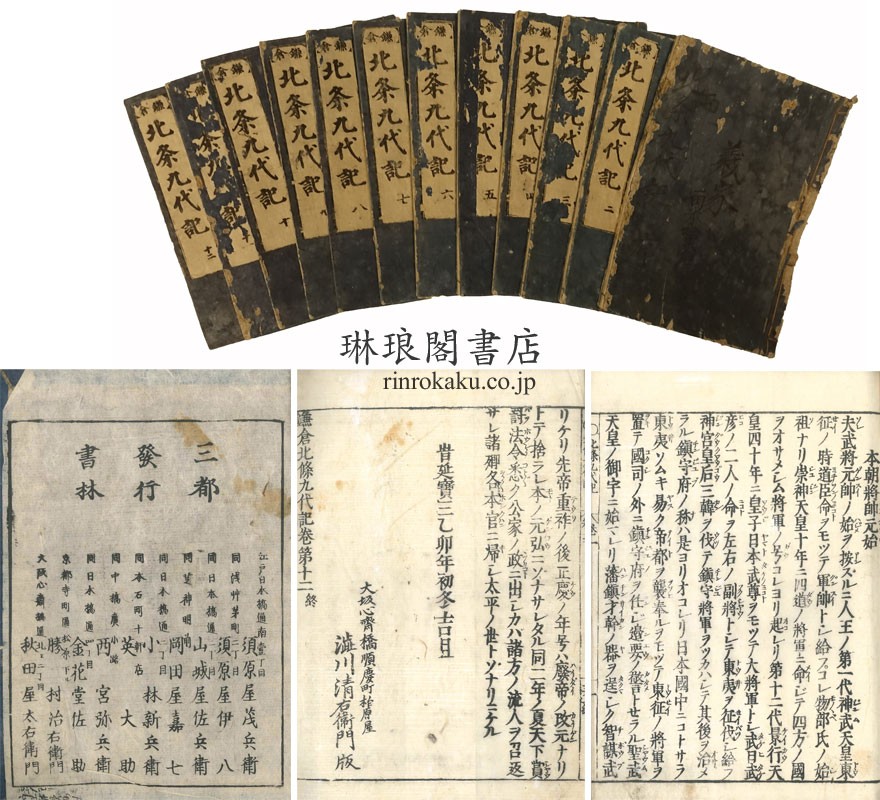 鎌倉
北条九代記 二
鎌倉
北条九代記 三
北条九代記 四
北条九代記 五
鎌倉
北条九代記 六
鎌倉
北条九代記 七
鎌倉
北条九代記 八
鎌倉
北条九代記 九
鎌倉
北条九代記 十
九代記
鎌倉
北条九代記 十二
琳琅閣書店
rinrokaku.co.jp
本朝將帥元始
夫武將元帥ノ始ヲ按スルニ人王ノ第一代神武天皇東
征ノ時道臣命ヲモツテ軍帥トシ給フコレ物部氏ノ始
祖ナリ崇神天皇十年ニ四道ノ將軍ニ命シテ四方ノ國
ヲオサメシム將軍ノ号コレヨリ起レリ第十二代景行天
皇四十年ニ皇子日本武尊ヲモツテ大將軍トシ武日武
彦ノ二人ノ命ヲ左右ノ副將トシテ東夷ヲ征伐シ給フ
神宮皇后三韓ヲ伐テ鎮守將軍ヲツカハシテ其後ヲ治メ
ラル鎮守府ノ称ハ是ヨリオコレリ日本國中ニコトサラ
東夷ソムキ易ク帝都ヲ襲奉ルヲモツテ東征ノ將軍ヲ
置テ國司ノ外ニ鎮守府ヲ任シ邊要ノ セラル聖武
天皇ノ御宇ニ始マレリ藩鎮才幹ノ器ヲ シク智謀武
リケリ先帝重祚ノ後正慶ノ年号ハ廢帝ノ改元ナリ
トテ捨ラレ本ノ元弘ニソナサレタル同二年ノ夏天下賞
罰法令悉ク公家ノ政ニ出シカバ諸方ノ流人ヲ召返
サレ諸卿各本官ニ帰シ太平ノ世トソナリニケル
旹延寶三乙卯年初冬吉日
大坂心齋橋順慶町柏原屋
澁川清右衛門版
鎌倉北條九代記卷第十二終
三都
發行
書林
江戸日本橋通南壹丁目 須原屋茂兵衛
同浅草茅町二丁目 須原屋伊八
同日本橋通二丁目 山城屋佐兵衛
同芝神明前 岡田屋嘉七
同日本橋通二丁目 小林新兵衛
同本石町十軒店 英大助
同中橋廣小路 西宮弥兵衛
同日本橋通 金花堂佐助
京都寺町通松原下 勝村治右衛門
大阪心齋橋 秋田屋太右衛門